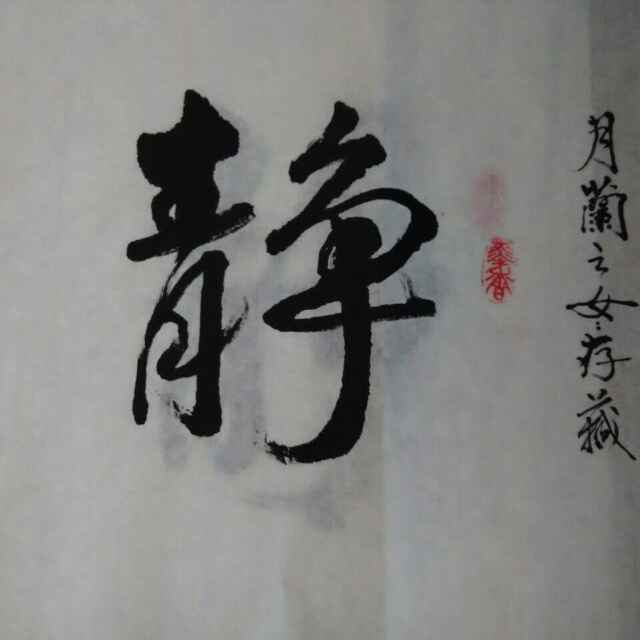 静
月蘭之女存藏